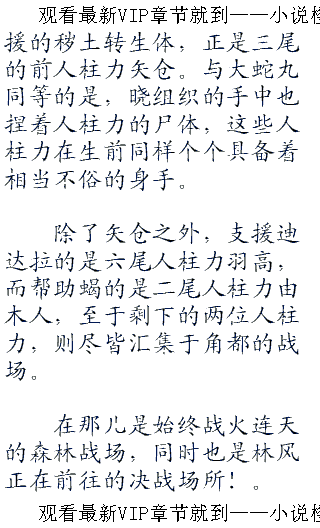 观看最新VIP章节就到——小说
援的秽土转生体，正是三尾
的前人柱力矢仓。与大蛇丸
同等的是，晓组织的手中也
捏着人柱力的尸体，这些人
柱力在生前同样个个具备着
相当不俗的身手。
除了矢仓之外，支援迪
达拉的是六尾人柱力羽高，
而帮助蝎的是二尾人柱力由
木人，至于剩下的两位人柱
力，则尽皆汇集于角都的战
场。
在那儿是始终战火连天
的森林战场，同时也是林风
正在前往的决战场所！。
观看最新VIP章节就到——小说